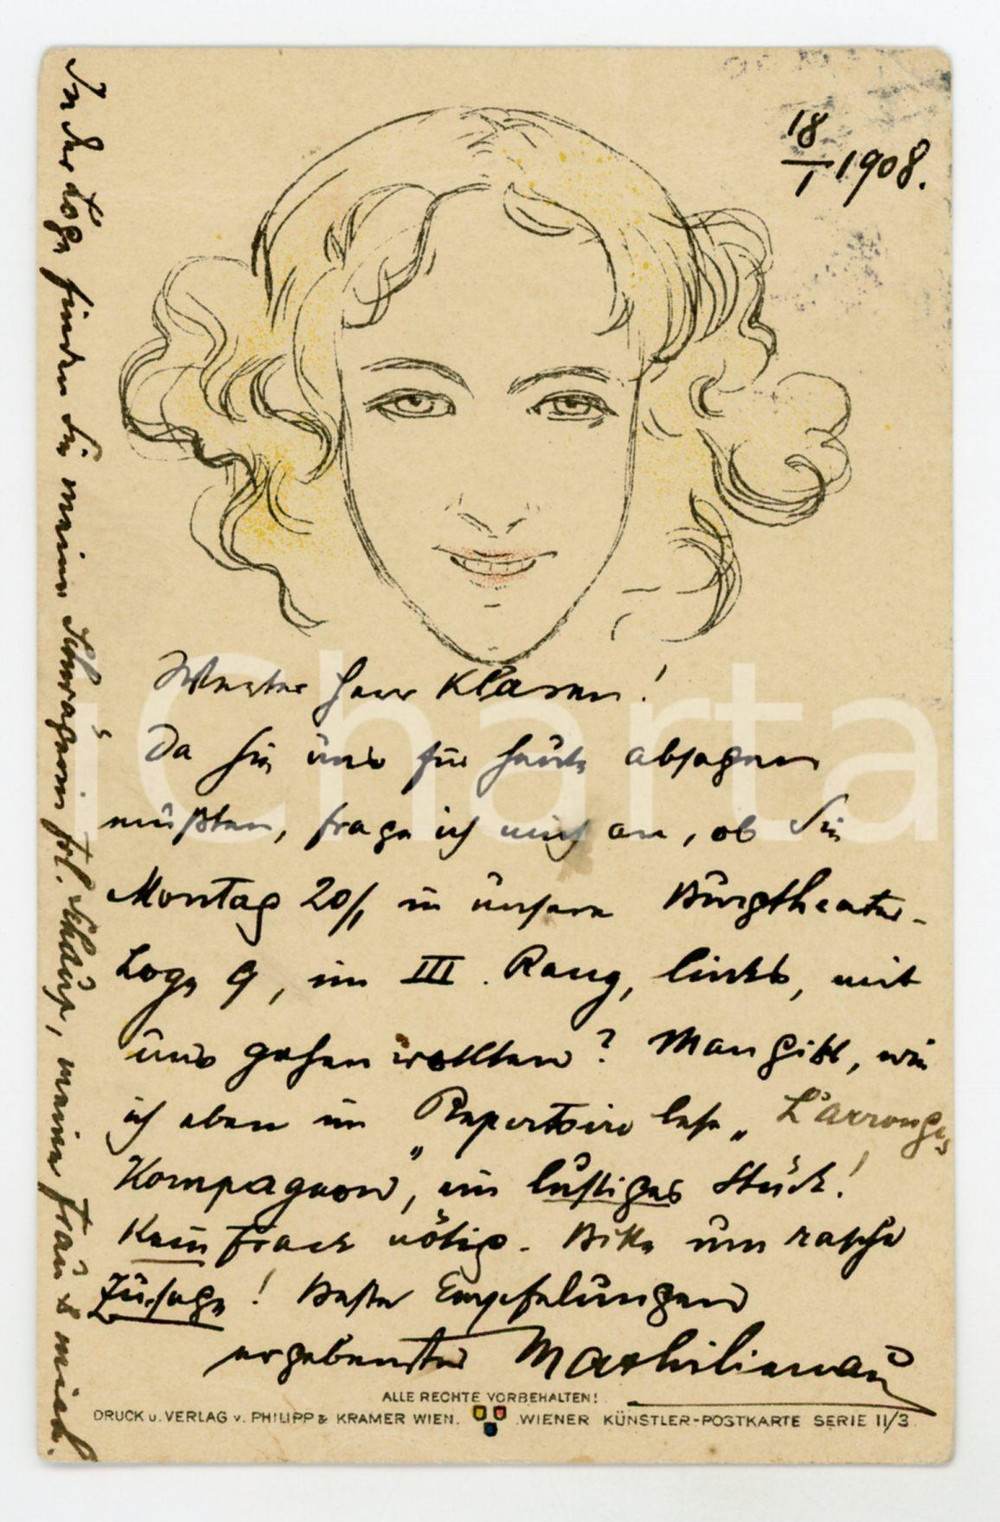 18/1 1908.
Werter Herr Klasen!
Da Sie uns für heute absagen
müßten, frage ich mich an, ob Sie
Montag 20/1 in unsere Burgtheater-
Loge 9, im III. Rang, links, mit
uns gehen wollten? Man gibt, wie
ich eben im Repertoire lese „L'Arronges
Kompagnon", ein lustiges Stück!
Kein Frack nötig. Bitte um rasche
Zusage! Beste Empfelungen
ergebenster
In der Loge finden Sie meine Schwägerin Frl. Schaup, meine Frau & mich.
ALLE RECHTE VORBEHALTEN!
DRUCK u. VERLAG v. PHILIPP & KRAMER WIEN. WIENER KÜNSTLER-POSTKARTE SERIE II/3
Charta